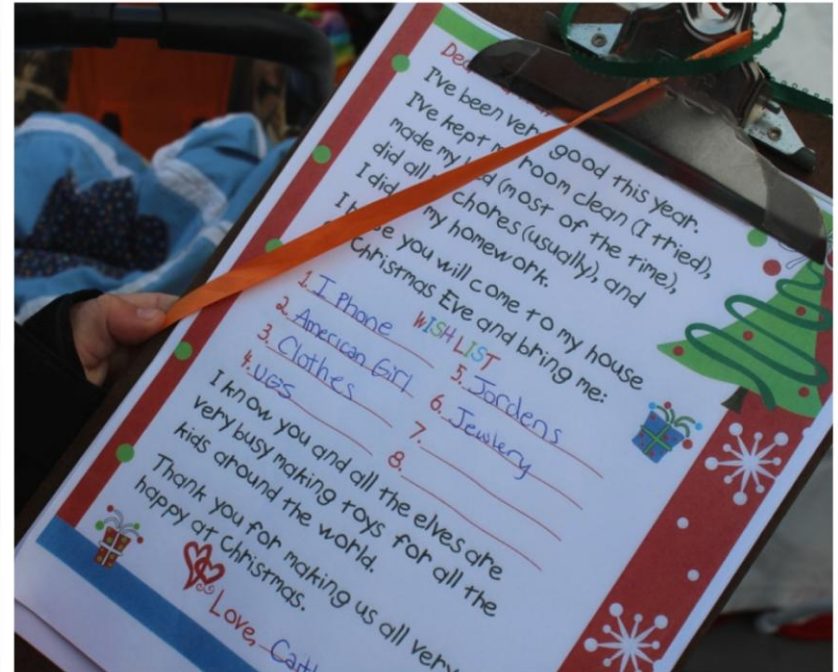 I've been very good this year.
I've kept my room clean (I tried),
made my bed (most of the time),
did all chores (usually), and
I did my homework.
I hope you will come to my house
Christmas Eve and bring me:
WISH LIST
1. I Phone
2. American Girl
3. Clothes
4. UGS
5. Jordens
6. Jewlery
7.
8.
I know you and all the elves are
very busy making toys for all the
kids around the world.
Thank you for making us all very
happy at Christmas.
Love,